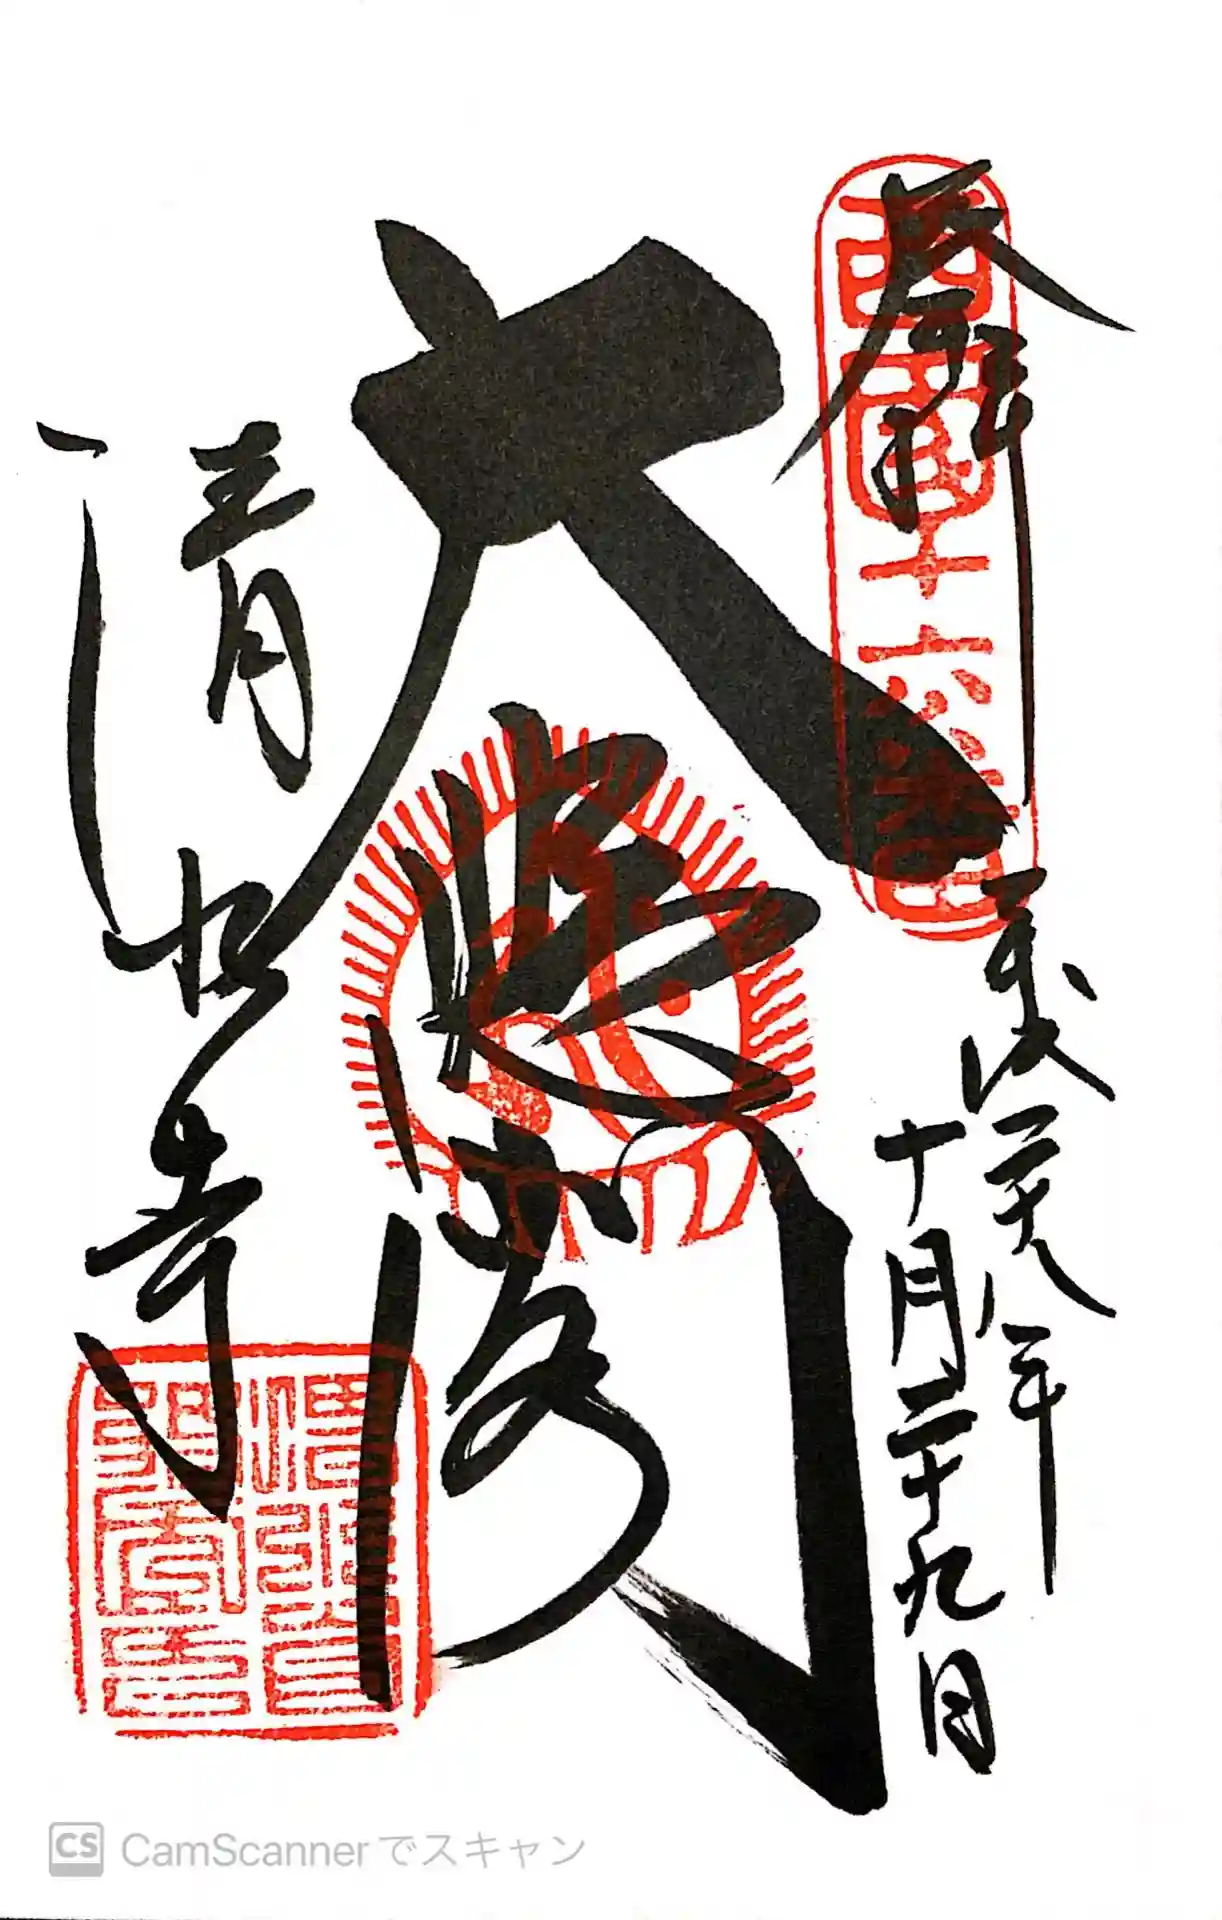 奉拝
西国十六番
平成二十八年
十月二十九日
大悲閣
清水寺
CS CamScannerでスキャン